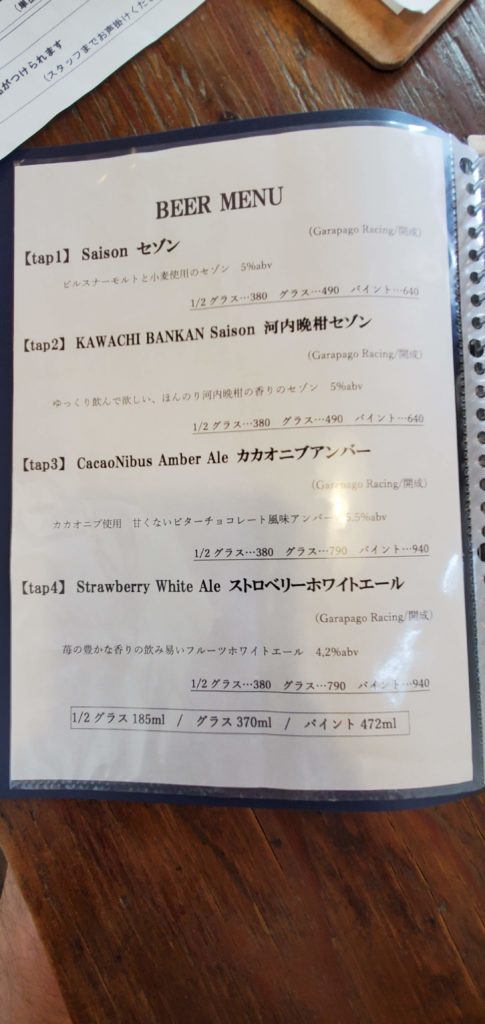 がつけられます
(スタッフまでお声掛けくだ
BEER MENU
(Garapago Racing/開成)
【tap1】 Saison セゾン
ピルスナーモルトと小麦使用のセゾン 5%abv
1/2グラス…380 グラス…490 パイント…640
【tap2】 KAWACHI BANKAN Saison 河内晩柑セゾン
(Garapago Racing/開成)
ゆっくり飲んで欲しい、ほんのり河内晩柑の香りのセゾン 5%abv
1/2グラス…380 グラス…490 パイント…640
【tap3】 CacaoNibus Amber Ale カカオニブアンバー
(Garapago Racing/開成)
カカオニブ使用 甘くないビターチョコレート風味アンバー 5.5%abv
1/2グラス…380 グラス…790 パイント…940
【tap4】 Strawberry White Ale ストロベリーホワイトエール
(Garapago Racing/開成)
苺の豊かな香りの飲み易いフルーツホワイトエール 4,2%abv
1/2グラス…380 グラス…790 パイント…940
1/2グラス 185ml / グラス 370ml / パイント 472ml